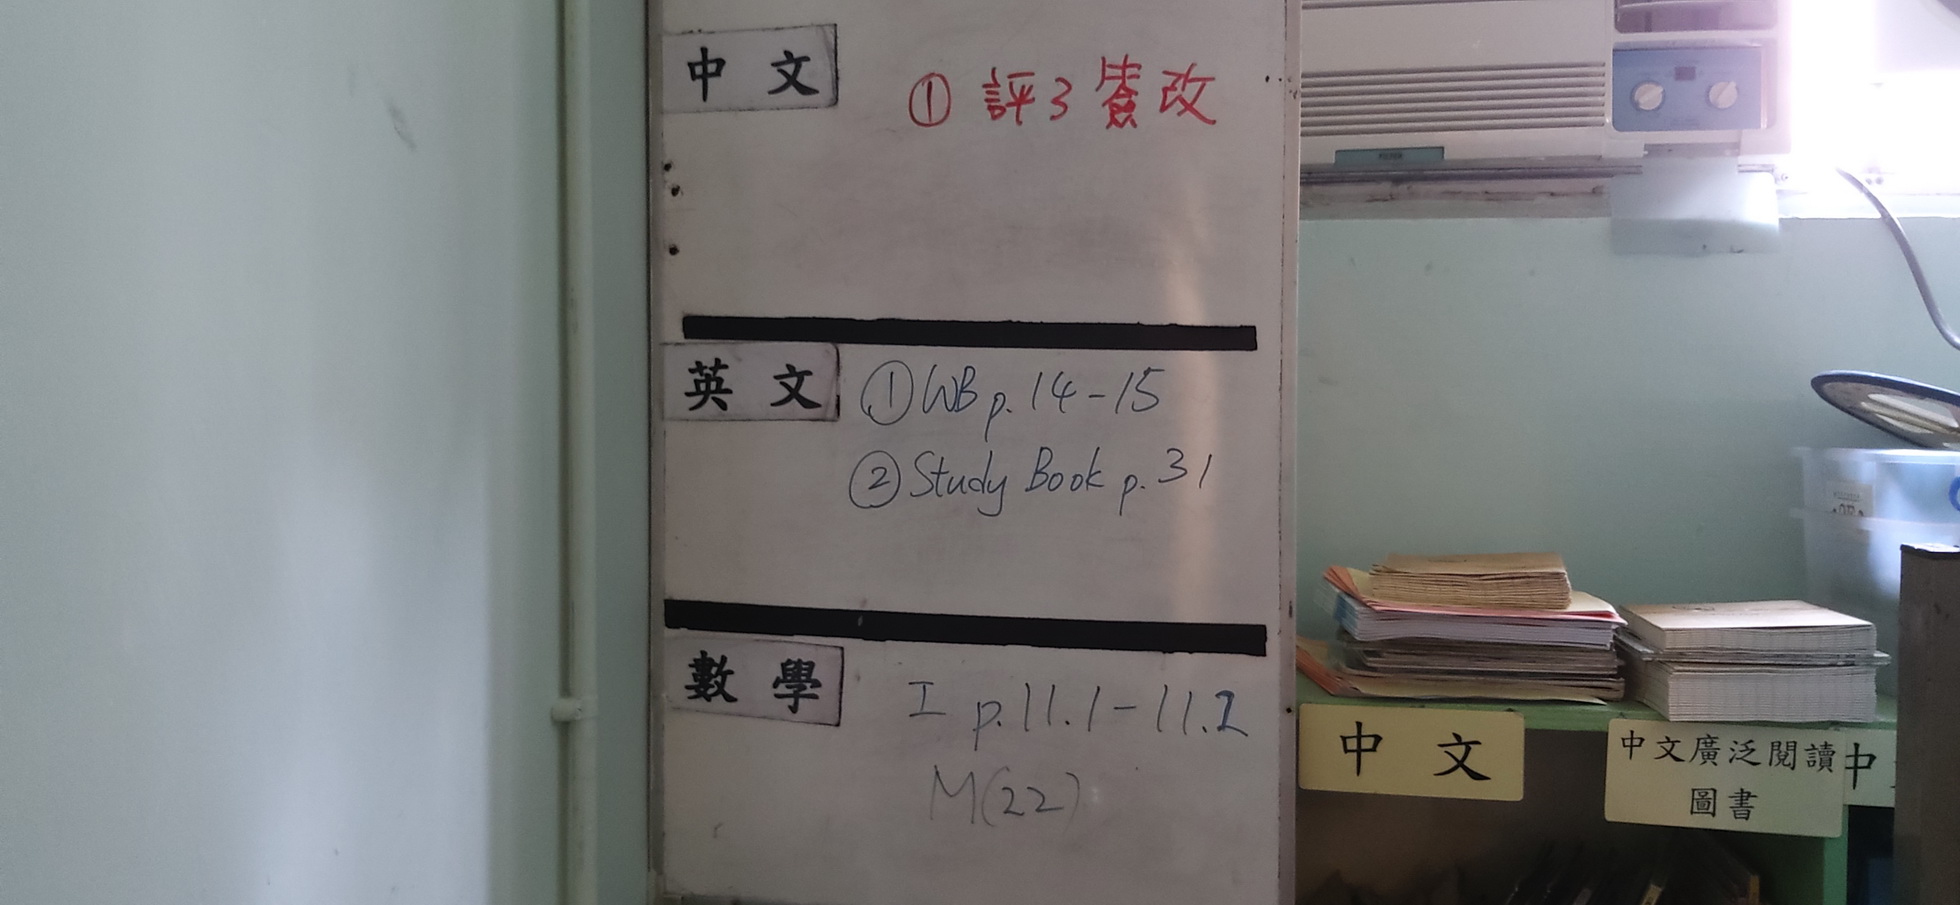 中文
① 評3簽改
英文
① WB p.14-15
② Study Book p.31
數學
I p.11.1-11.2
M(22)
中文
中文廣泛閱讀
圖書
中